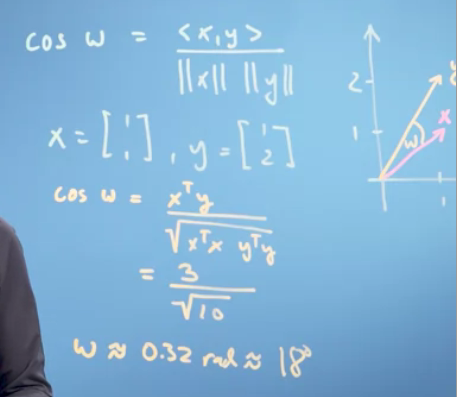 cos ω = <x,y>
‖x‖ ‖y‖
x = [1 1], y = [1 2]
cos ω = xᵀy
√xᵀx yᵀy
= 3
√10
ω ≈ 0.32 rad ≈ 18°
2
y
x
1
ω
1